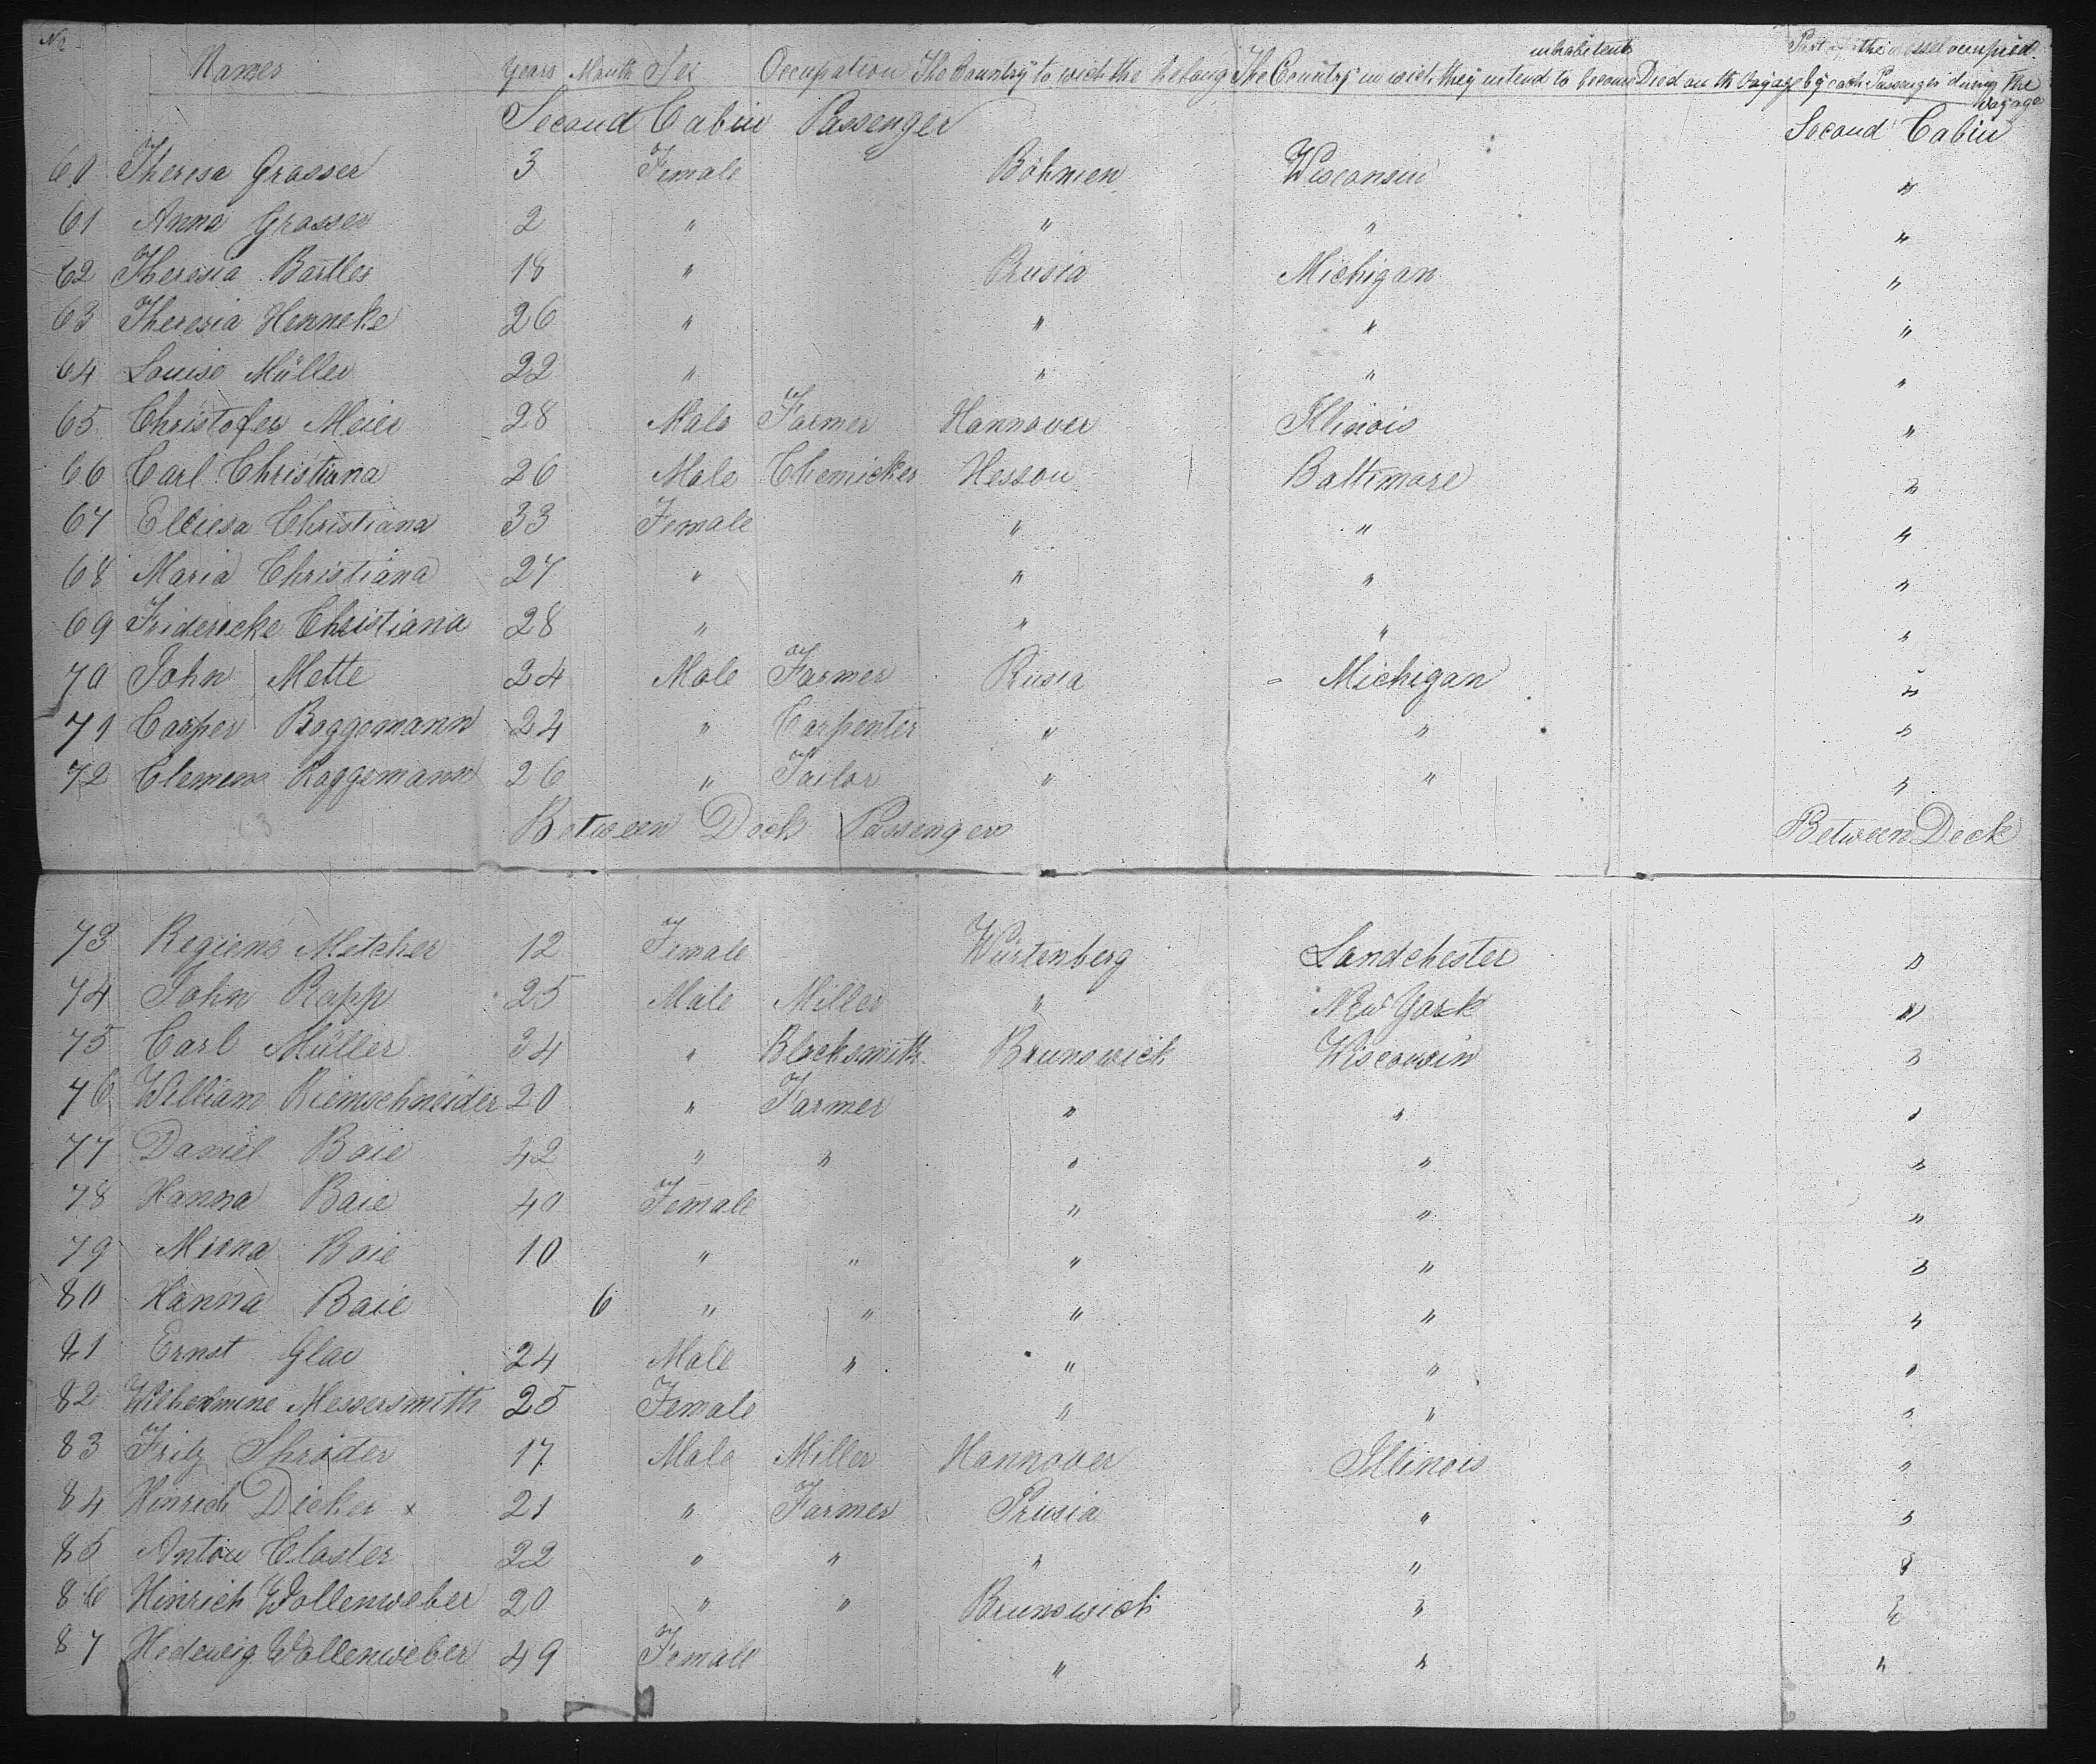 No Names Years Month Sex Occupation The Country to wich the belong The Country in wich they intend to become inhabitents Died on th Voyage Part of the vessel occupied by each Passenger during the voyage
Second Cabin Passenger Second Cabin
60 Theresa Grasser 3 Female Böhmen Wisconsin "
61 Anna Grasser 2 " " " "
62 Theresia Bartles 18 " Prusia Michigan "
63 Theresia Henneke 26 " " " "
64 Louise Müller 22 " " " "
65 Christofer Meier 28 Male Farmer Hannover Illinois "
66 Carl Christiana 26 Male Chemicker Hesson Baltimare "
67 Elliesa Christiana 33 Female " " "
68 Maria Christiana 27 " " " "
69 Friderecke Christiana 28 " " " "
70 John Mette 24 Male Farmer Prusia Michigan "
71 Casper Roggemann 24 " Carpenter " " "
72 Clemens Roggemann 26 " Tailor " " "
Between Deck Passengers Between Deck
73 Regiene Metcher 12 Female Würtenberg Landchester "
74 John Rapp 25 Male Miller " New York "
75 Carl Müller 34 " Blacksmith Brunswich Wisconsin "
76 William Riemschneider 20 " Farmer " " "
77 Daniel Baie 42 " " " " "
78 Hanna Baie 40 Female " " "
79 Minna Baie 10 " " " " "
80 Hanna Baie 6 " " " " "
81 Ernst Glae 24 Male " " " "
82 Wilhelmine Messersmith 25 Female " " "
83 Fritz Shröder 17 Male Miller Hannover Illinois "
84 Hinrich Dicher x 21 " Farmer Prusia " "
85 Anton Claster 22 " " " " "
86 Hinrich Wollenweber 20 " " Brunswich " "
87 Hedewig Wollenweber 49 Female " " "